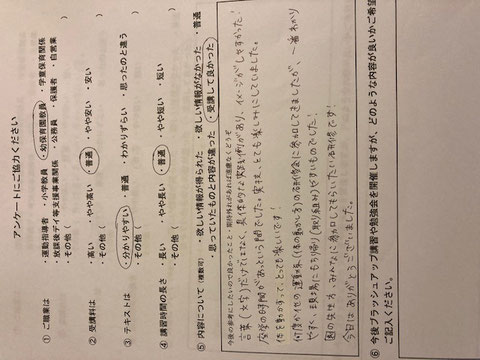 アンケートにご協力ください
① ご職業は ・運動指導者 ・小学教員 ・幼保育園教員 ・学童保育関係
・放課後デイ等支援事業関係 ・公務員 ・保護者 ・自営業
・その他（ ）
② 受講料は ・高い ・やや高い ・普通 ・やや安い ・安い
・その他（ ）
③ テキストは ・分かりやすい ・普通 ・わかりずらい ・思ったのと違う
・その他（ ）
④ 講習時間の長さ ・長い ・やや長い ・普通 ・やや短い ・短い
・その他（ ）
⑤ 内容について（複数可） ・欲しい情報が得られた ・欲しい情報がなかった ・普通
・思っていたものと内容が違った ・受講して良かった
今後の参考にしたいので良かったこと・期待外れがあれば遠慮なくどうぞ
言葉（文字）だけではなく、具体的な実例があり、イメージがしやすかった!
座学の時間があっという間でした。実技、とても楽しみにしていました。
体を動かすって、とっても楽しいです!
何度か他の運動系（体の動かし方）の研修会に参加してきましたが、一番わかり
やすく、現場にもち帰り（取り組み）やすいものでした!
園の先生方、みんなに参加してもらいたい研修です!
今日はありがとうございました。
⑥ 今後ブラッシュアップ講習や勉強会を開催しますが、どのような内容が良いかご希望
ご記入ください。